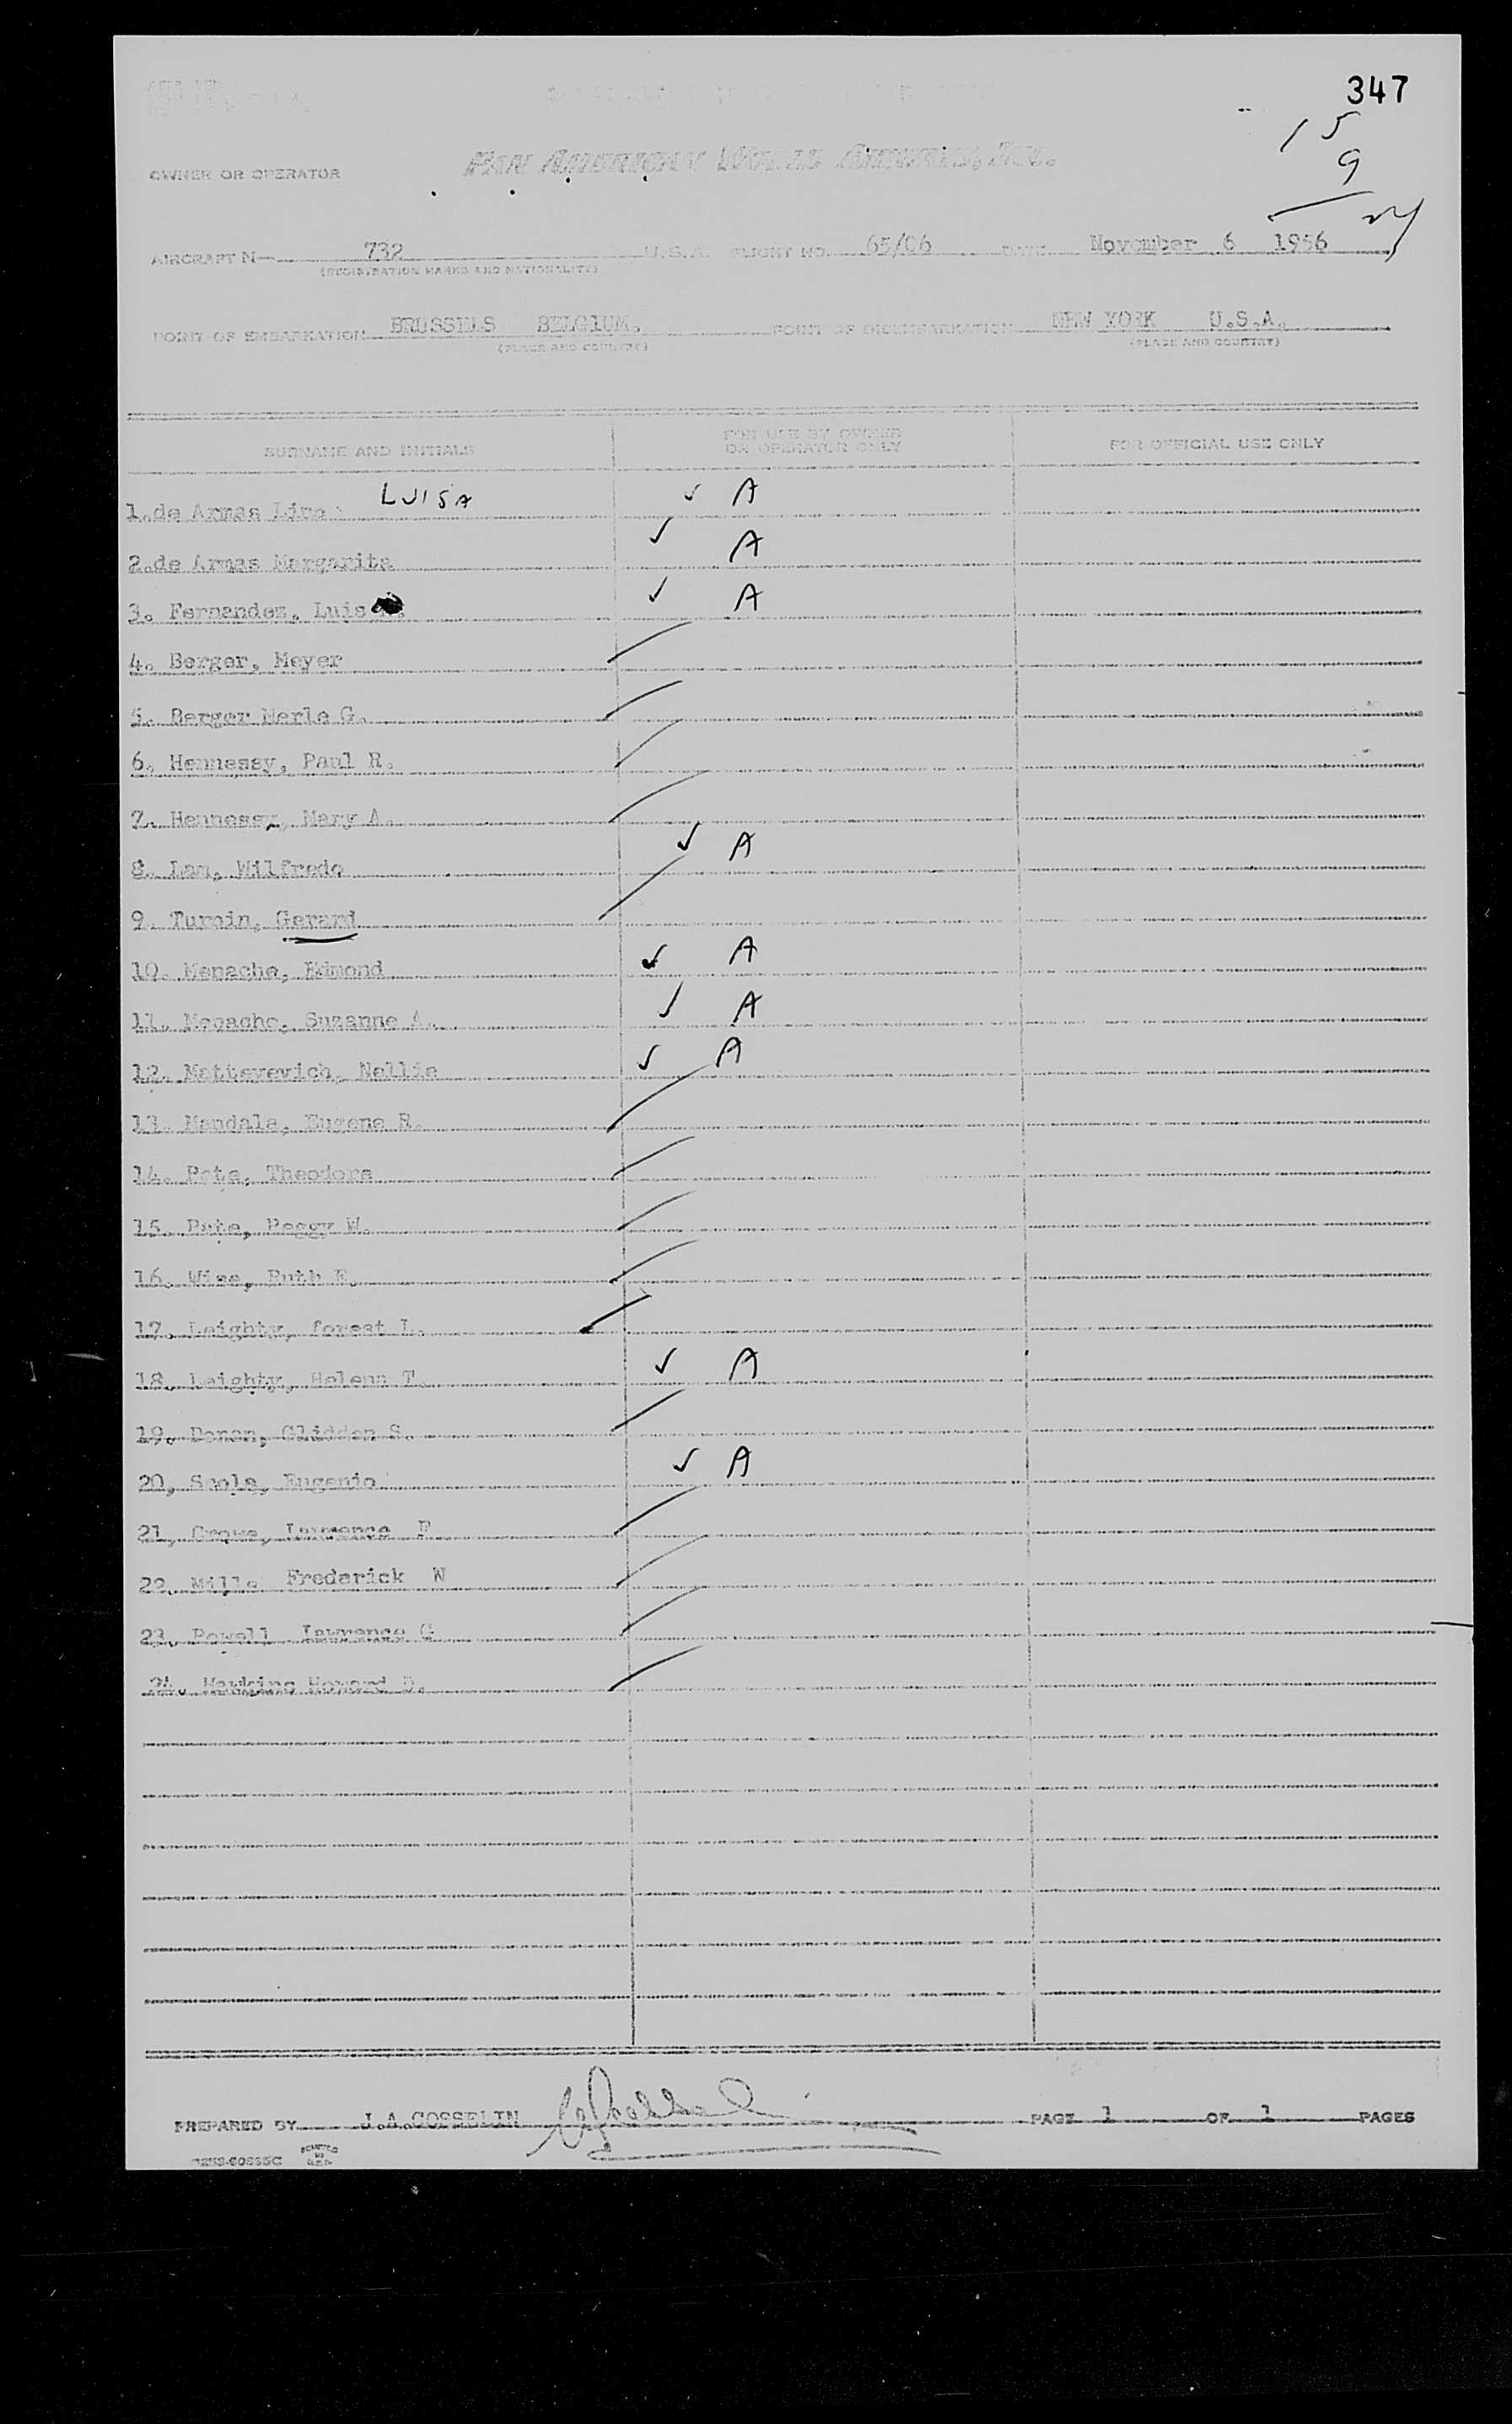 347
15
9
24
OWNER OR OPERATOR PAN AMERICAN WORLD AIRWAYS, INC.
AIRCRAFT N— 732 U.S.A. FLIGHT NO. 65/06 DATE November 6 1956
(REGISTRATION MARKS AND NATIONALITY)
POINT OF EMBARKATION BRUSSELS BELGIUM. POINT OF DISEMBARKATION NEW YORK U.S.A.
(PLACE AND COUNTRY) (PLACE AND COUNTRY)
SURNAME AND INITIALS FOR USE BY OWNER OR OPERATOR ONLY FOR OFFICIAL USE ONLY
1. de Armas LUISA ✓ A
2. de Armas Margarita ✓ A
3. Fernandez, Luis ✓ A
4. Berger, Meyer
5. Berger Merle G.
6. Hennessy, Paul R.
7. Hennessy, Mary A.
8. Lam, Wilfredo ✓ A
9. Turpin, Gerard
10. Menache, Edmond ✓ A
11. Menache, Suzanne A. ✓ A
12. Mattevevich, Nellie ✓ A
13. Mandala, Eugene R.
14. Pate, Theodora
15. Pate, Peggy W.
16. Wise, Ruth E.
17. Leighty, forest L.
18. Leighty, Helena T. ✓ A
19. Doran, Glidden S.
20, Scola, Eugenio ✓ A
21, Crowe, Lawrence F
22. Mills Frederick W
23. Powell Lawrence G
24. Hawkins Howard D.
PREPARED BY J.A.GOSSELIN PAGE 1 OF 1 PAGES
PRINTED IN U.S.A.